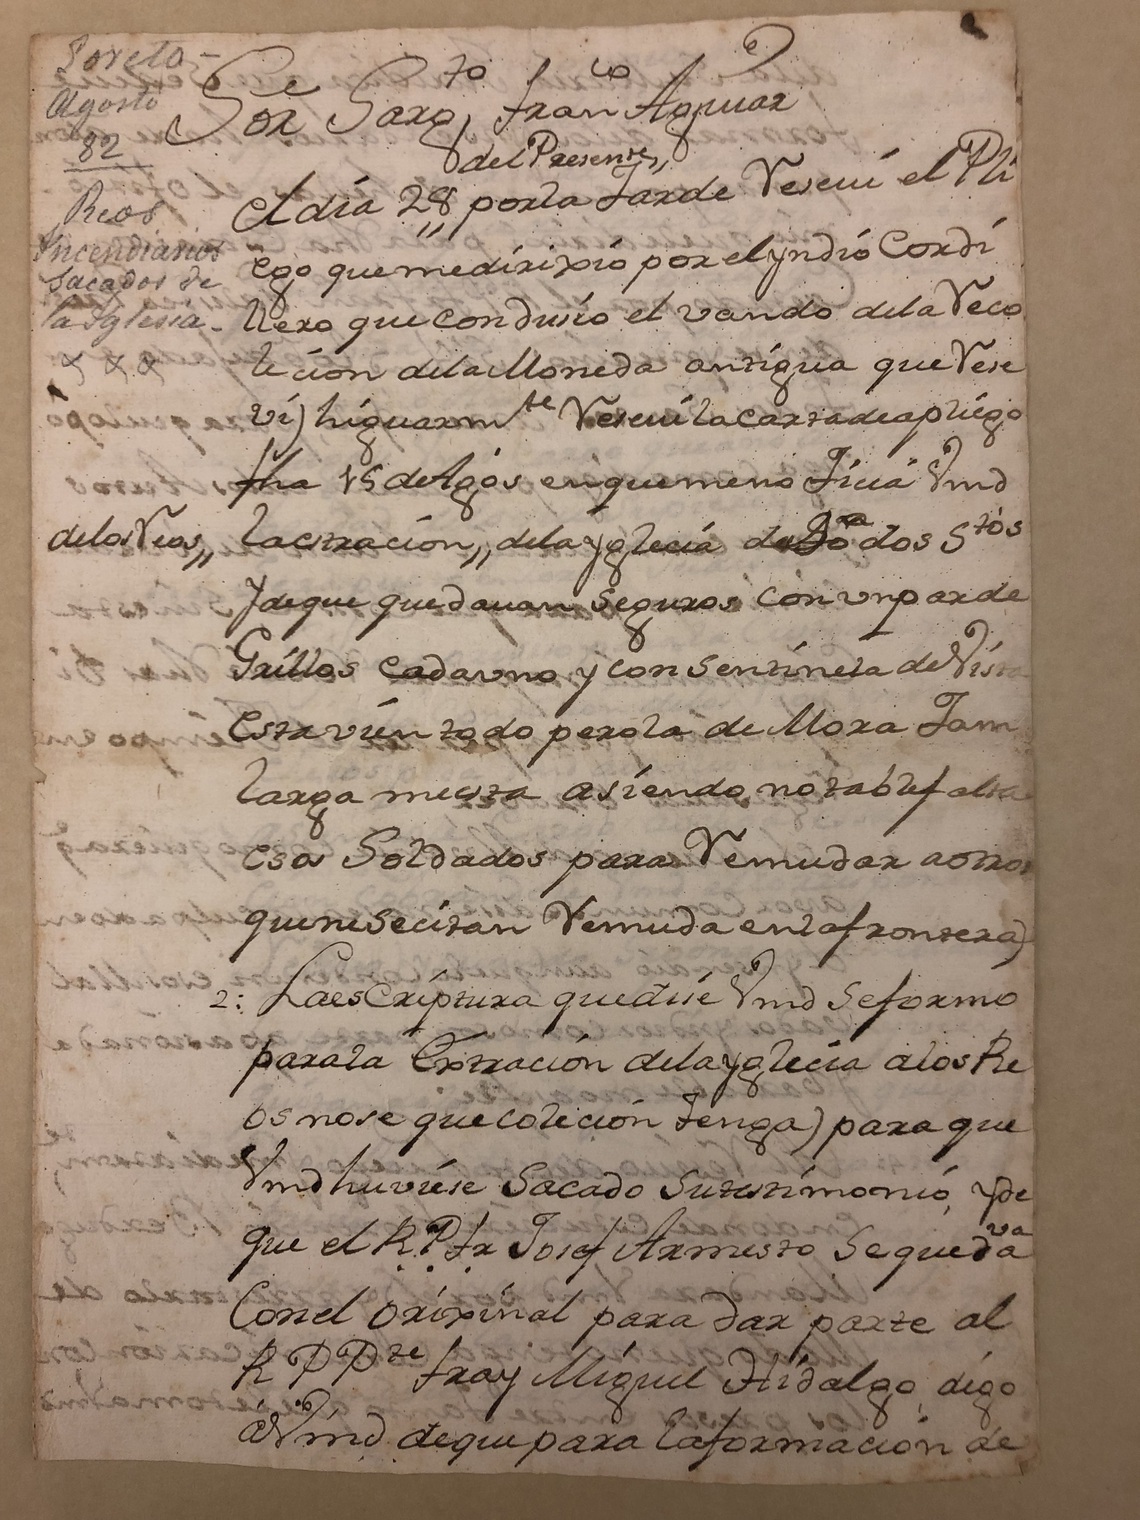 Loreto -
Agosto
82
Reos
Incendiarios
Sacados de
la Iglesia -
Sor Sargto franco Aguiar
del Presente,,
el dia 28 por la tarde Reseui el Pli
ego que me dirixio por el yndio Cordi
llero que condusio el vando de la Reco
lecion de la Moneda antigua que Rese
vi) higuarmte Reseui la carta de apliego
fha 15 de Agos en que me no ticia Vmd
de los Reos,, la extracion,, de la yglecia de todos Stos
y de que quedauan seguros con un par de
Grillos cada vno y con sentinela de Vista
esta vien todo pero la de Mora tam
larga me esta asiendo notable falta
esos Soldados para Remudar a otros
que nesecitan Remuda en la frontera)
2: La escriptura que dise Vmd se formo
para la Extracion de la yglecia a los Re
os no se que colecion tenga) para que
Vmd huviese Sacado su testimonio, y de
que el R. P. fr Josef Armesto se quedava
con el orixinal para dar parte al
R P Pte fray Miguel Hidalgo, digo
a Vmd de que para la formacion de